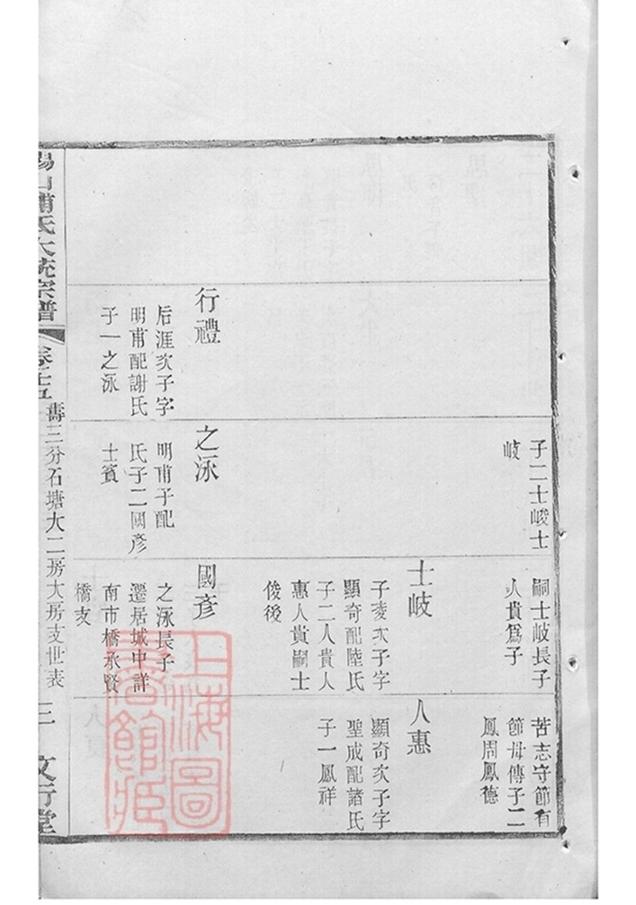 行禮
后涯次子字
明甫配謝氏
子一之泳
子二士峻士
岐
之泳
明甫子配
氏子二國彥
士賓
嗣士岐長子
人貴爲子
士岐
子夌次子字
顯奇配陸氏
子二人貴人
惠人貴嗣士
俊後
國彥
之泳長子
遷居城中詳
南市橋承賢
橋支
苦志守節有
節母傳子二
鳳周鳳德
人惠
顯奇次子字
聖成配諸氏
子一鳳祥
山浦氏大統宗譜
卷十五 壽三分石塘大二房大房支世表 三 文行堂
上海圖
書館藏